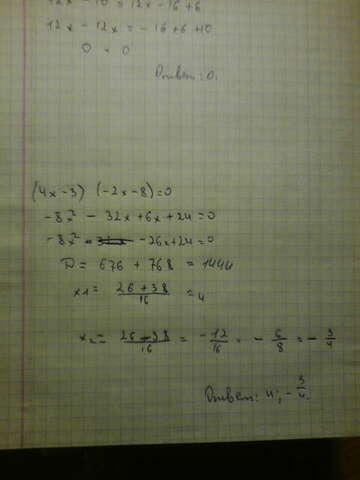 12x - 10 = 12x - 16 + 6
12x - 12x = - 16 + 6 + 10
0 = 0
Ответ: 0.
(4x - 3) (-2x - 8) = 0
-8x² - 32x + 6x + 24 = 0
-8x² - 26x + 24 = 0
D = 676 + 768 = 1444
x1 = 26 + 38 / 16 = 4
x2 = 26 - 38 / 16 = - 12/16 = - 6/8 = - 3/4
Ответ: 4; - 3/4.